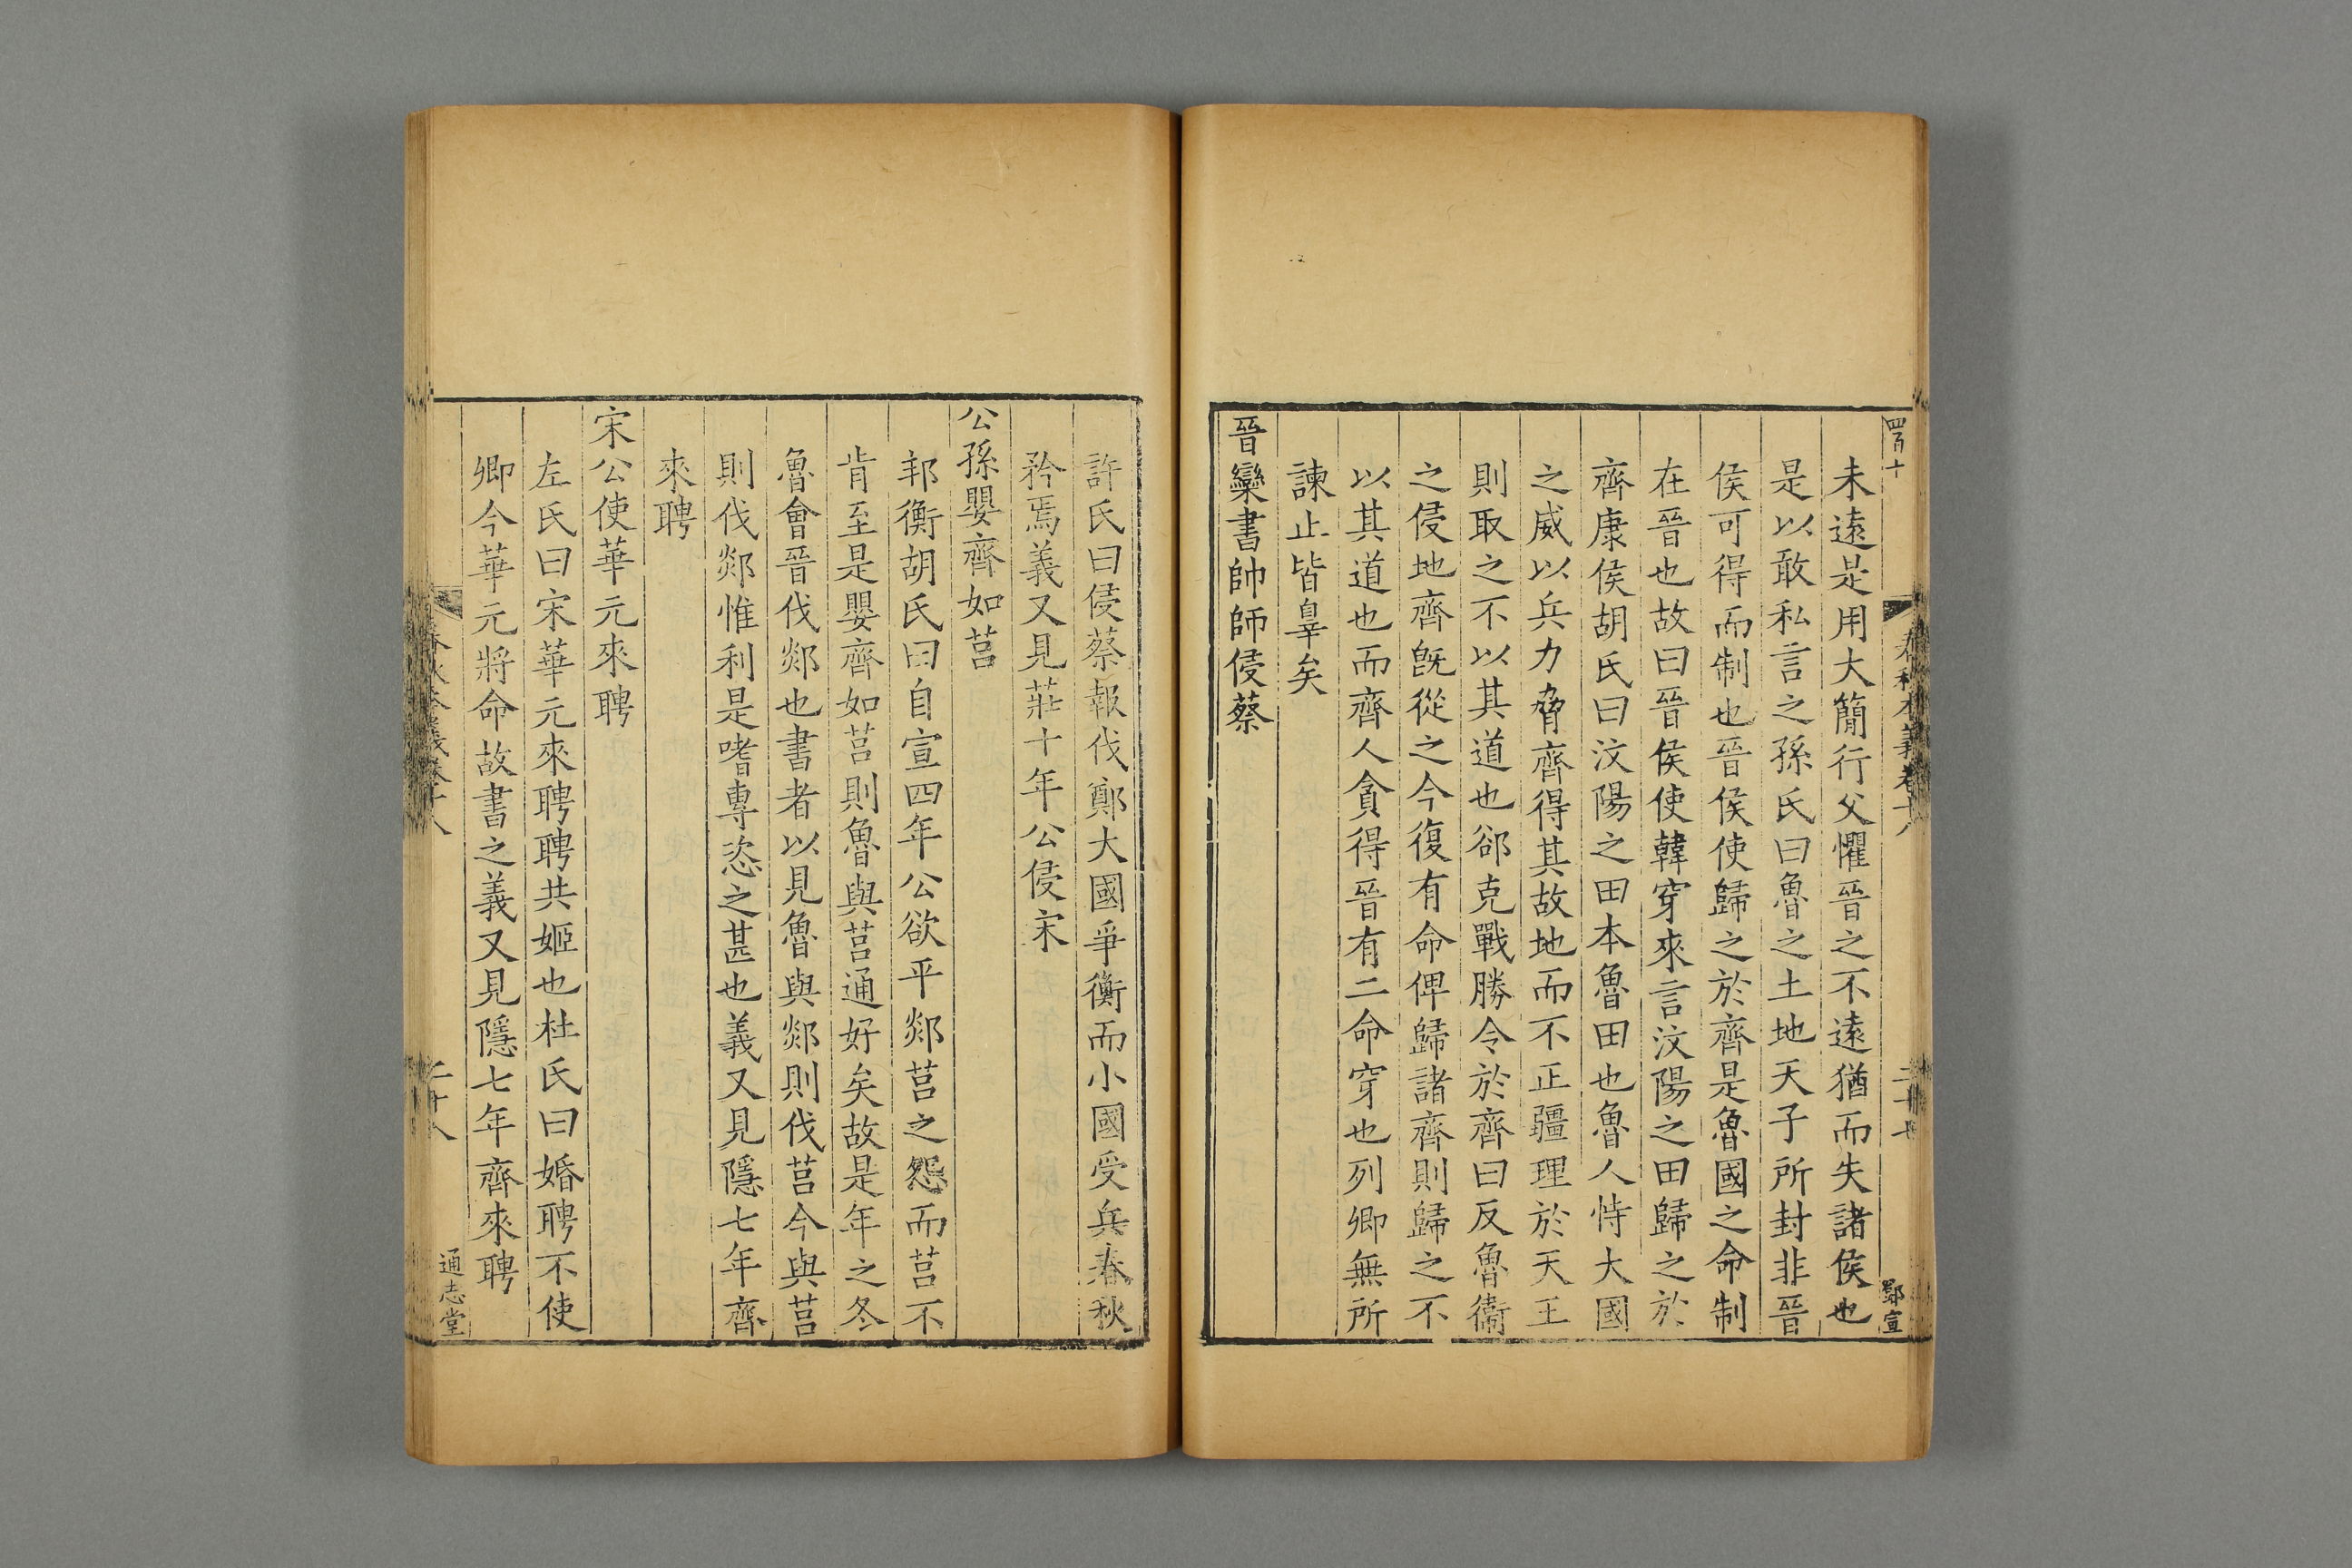 四百十
未遠是用大簡行父懼晉之不遠猶而失諸侯也
是以敢私言之孫氏曰魯之土地天子所封非晉
侯可得而制也晉侯使歸之於齊是魯國之命制
在晉也故曰晉侯使韓穿來言汶陽之田歸之於
齊康侯胡氏曰汶陽之田本魯田也魯人恃大國
之威以兵力脅齊得其故地而不正疆理於天王
則取之不以其道也郤克戰勝令於齊曰反魯衞
之侵地齊旣從之今復有命俾歸諸齊則歸之不
以其道也而齊人貪得晉有二命穿也列卿無所
諫止皆辠矣
晉欒書帥師侵蔡
許氏曰侵蔡報伐鄭大國爭衡而小國受兵春秋
矜焉義又見莊十年公侵宋
公孫嬰齊如莒
邦衡胡氏曰自宣四年公欲平郯莒之怨而莒不
肯至是嬰齊如莒則魯與莒通好矣故是年之冬
魯會晉伐郯也書者以見魯與郯則伐莒今與莒
則伐郯惟利是嗜專恣之甚也義又見隱七年齊
來聘
宋公使華元來聘
左氏曰宋華元來聘聘共姬也杜氏曰婚聘不使
卿今華元將命故書之義又見隱七年齊來聘
春秋本義卷十八
二十八
通志堂